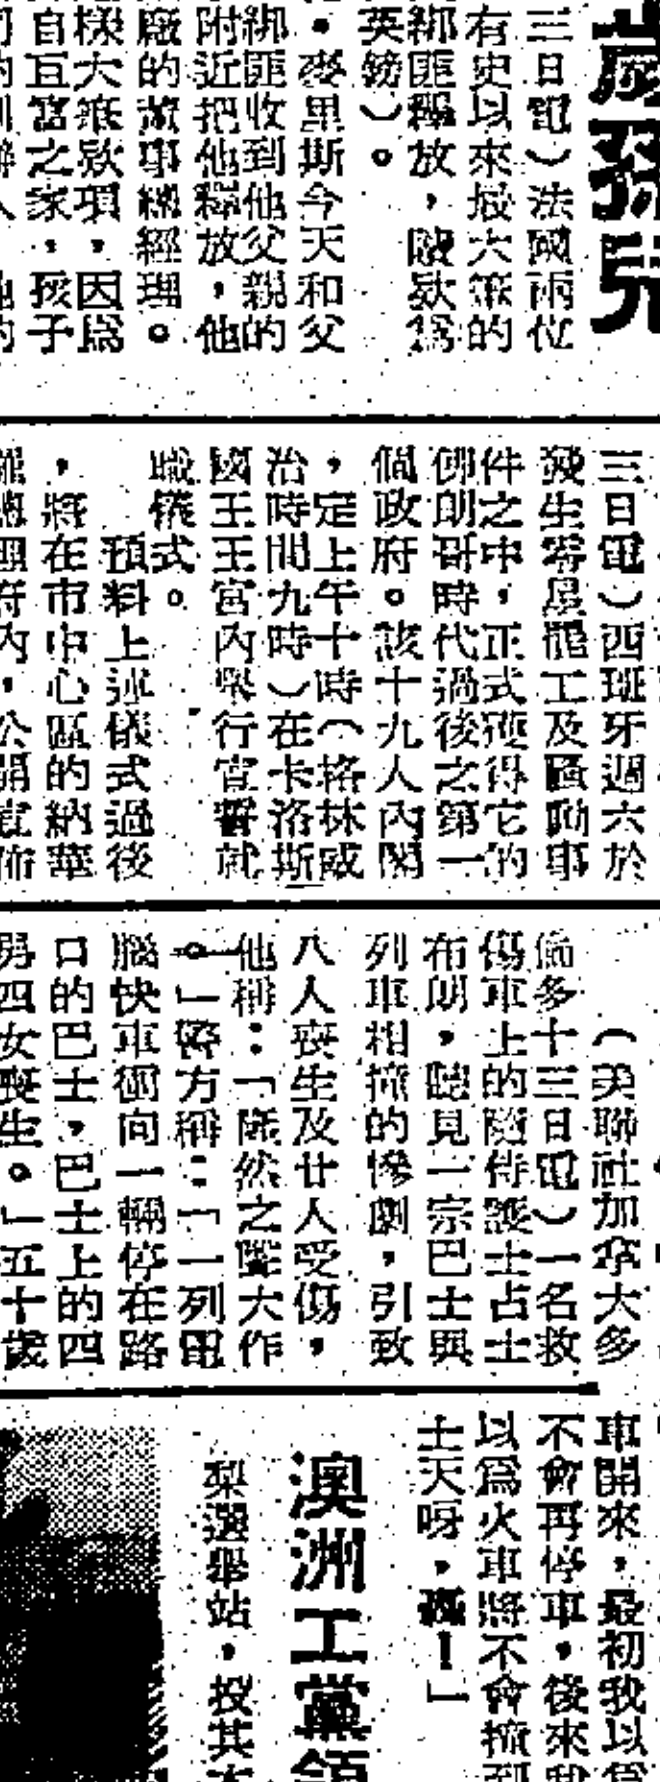 歲孫兒
三日電）法國兩位
有史以來最大筆的
綁匪釋放，贖款爲
英鎊）。
・麥里斯今天和父
綁匪收到他父親的
附近把他釋放，他
廠的董事總經理。
樣大筆欵項，因爲
自直富之家，孩子
三日電）西班牙週六於
發生零星罷工及騷動事
件之中，正式獲得它的
佛朗哥時代過後之第一
個政府。該十九人內閣
，定上午十時（格林威
治時間九時）在卡洛斯
國王王宮內舉行宣誓就
職儀式。
預料上述儀式過後
，將在市中心區的納華
羅總理府內，公開宣佈
（美聯社加拿大多
倫多十三日電）一名救
傷車上的隨侍護士占士
布朗，聽見一宗巴士與
列車相撞的慘劇，引致
八人喪生及廿人受傷，
他稱：「旣然之聲大作
。」警方稱：「一列電
腦快車衝向一輛停在路
口的巴士，巴士上的四
男四女喪生。」五十歲
車開來，最初我以爲
不會再停車，後來我
以爲火車將不會撞到
士天呀，轟！」
澳洲工黨領
梨選舉站，投其本